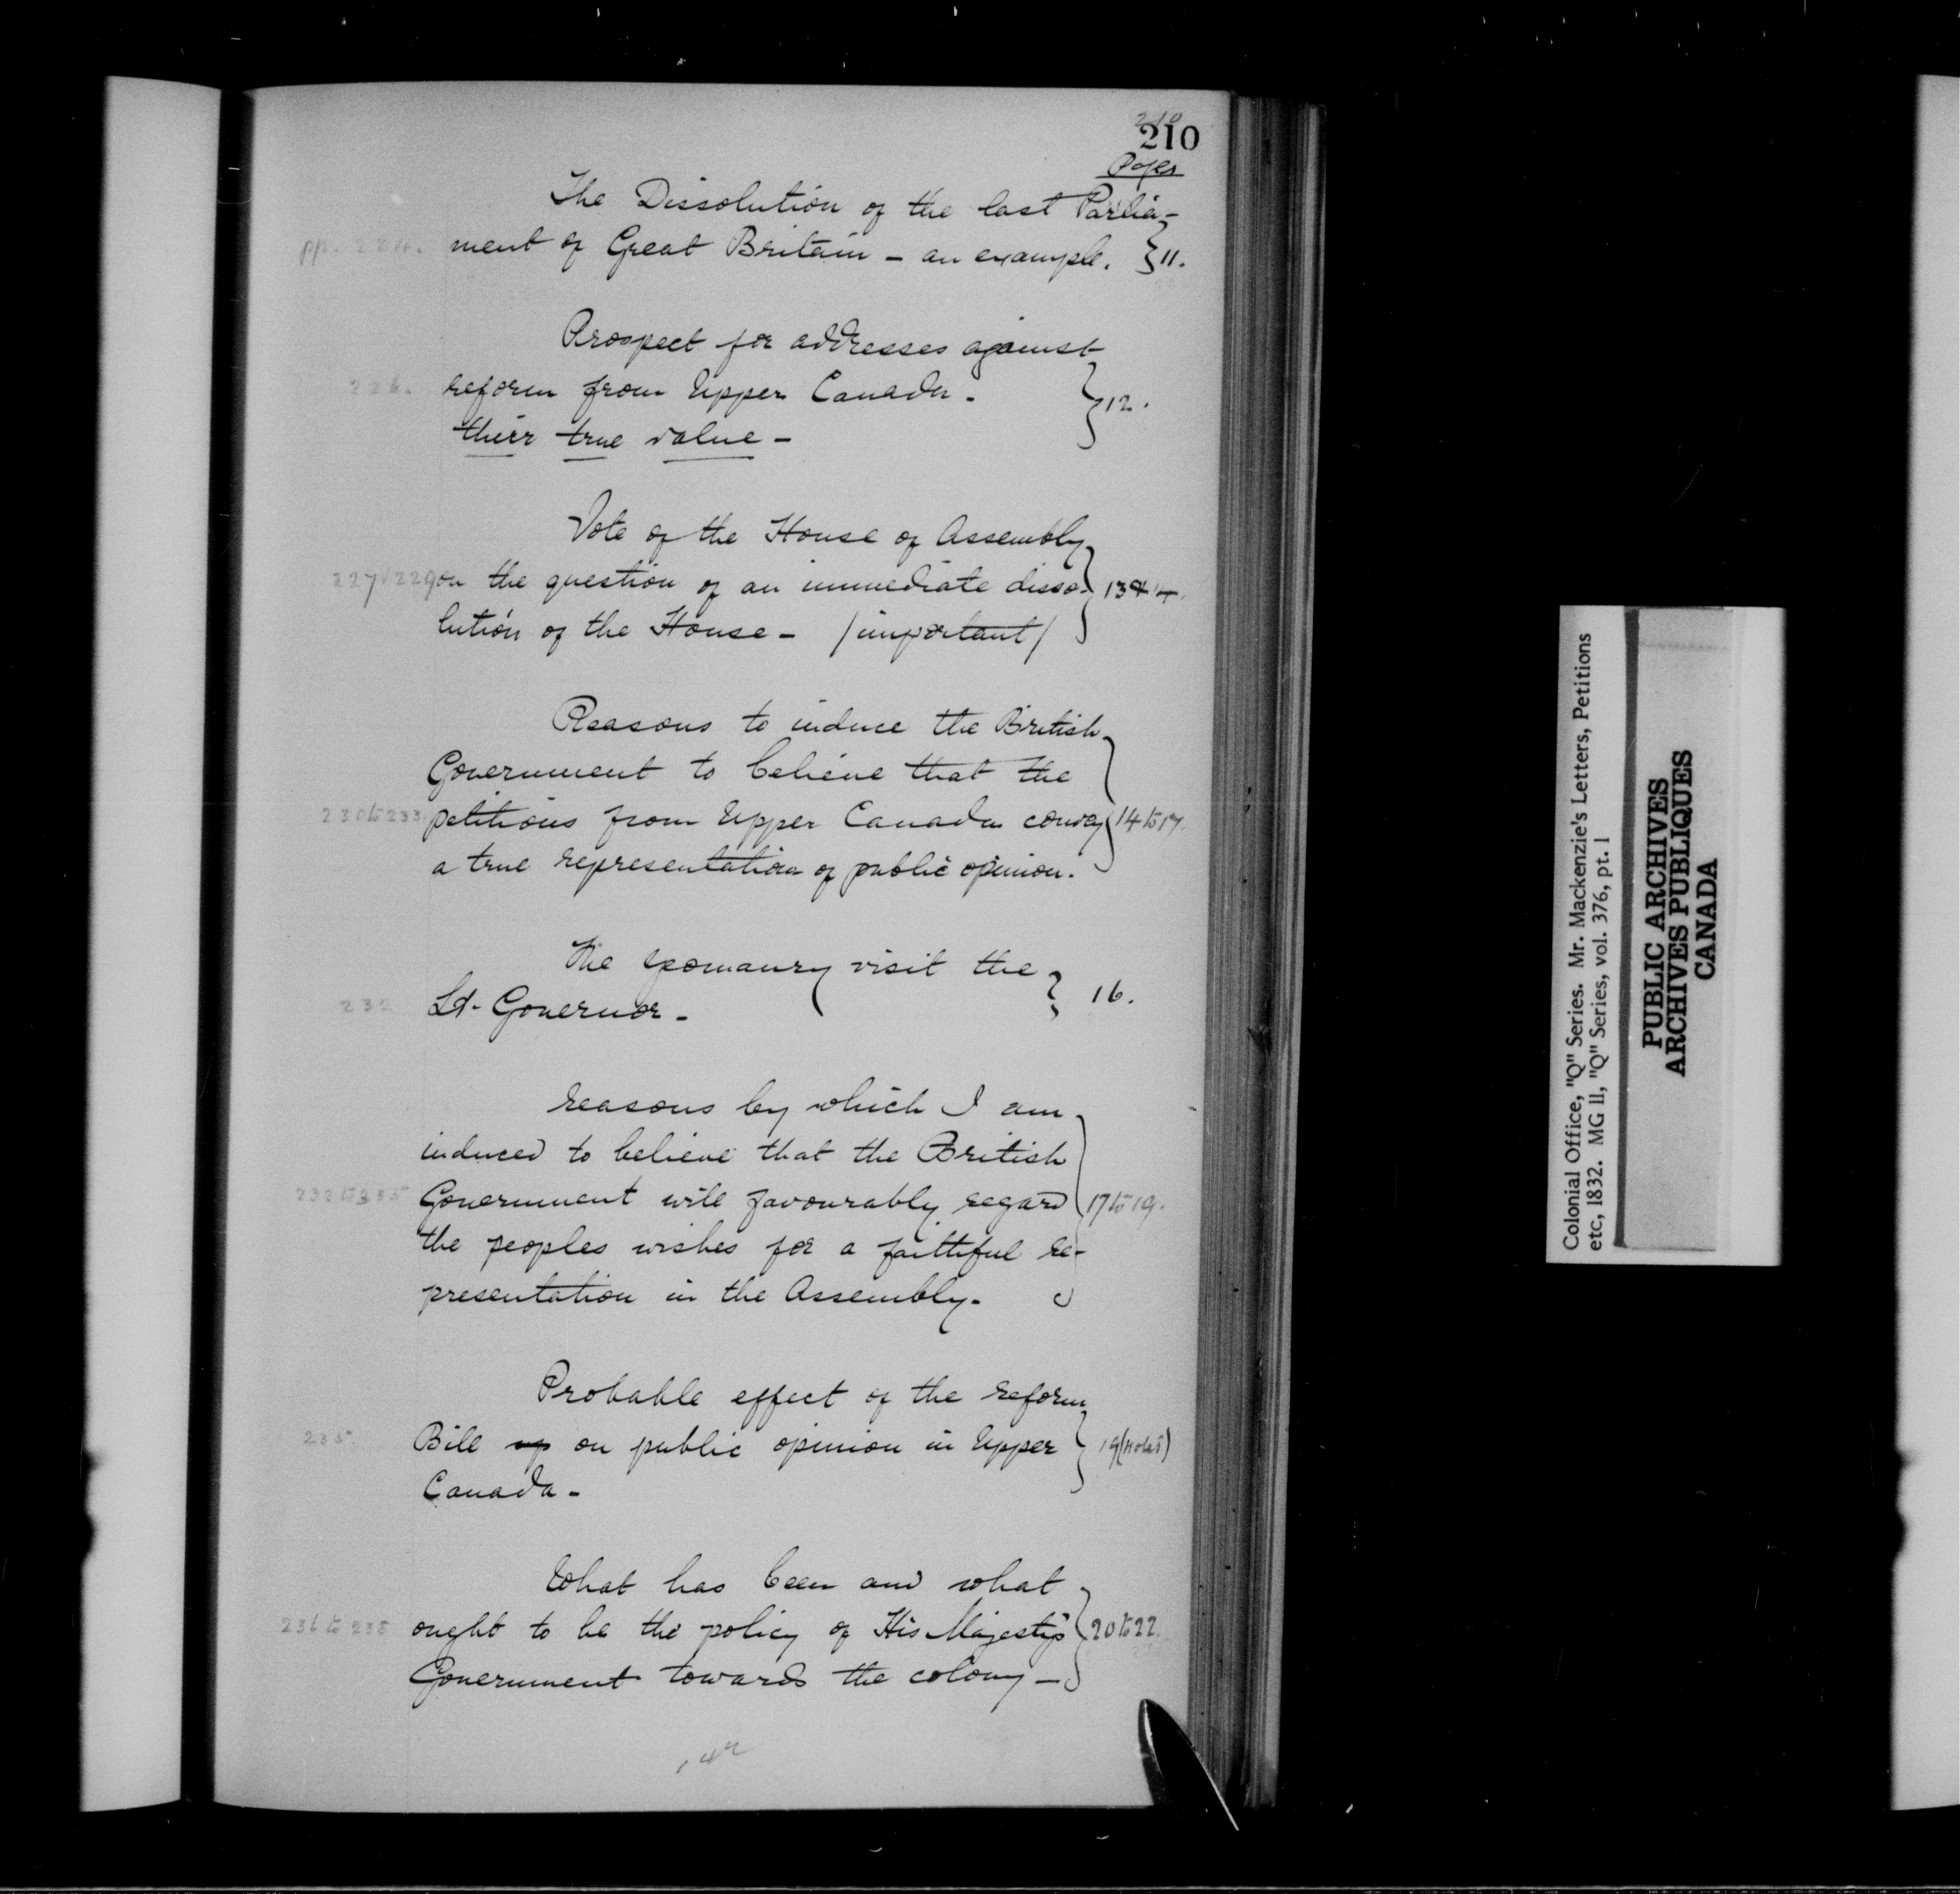 210
210
Pages
The Dissolution of the last Parlia-
pp. 224. ment of Great Britain - an example. } 11.
Prospect for addresses against
226. reform from Upper Canada -
} 12.
their true value -
Vote of the House of Assembly
227 & 229 on the question of an immediate disso- } 13 & 14.
lution of the House - /important/
Reasons to induce the British
Government to believe that the
230 to 233 petitions from Upper Canada convey } 14 to 17.
a true representation of public opinion.
The yeomanry visit the
232 Lt. Governor - } 16.
reasons by which I am
induced to believe that the British
232 to 235 Government will favourably regard } 17 to 19.
the peoples wishes for a faithful re-
presentation in the Assembly -
Probable effect of the reform
235. Bill up on public opinion in Upper } 19 (notes)
Canada -
What has been and what
236 to 238 ought to be the policy of His Majesty's } 20 to 22.
Government towards the colony -
Colonial Office, "Q" Series. Mr. Mackenzie's Letters, Petitions
etc, 1832. MG 11, "Q" Series, vol. 376, pt. 1
PUBLIC ARCHIVES
ARCHIVES PUBLIQUES
CANADA